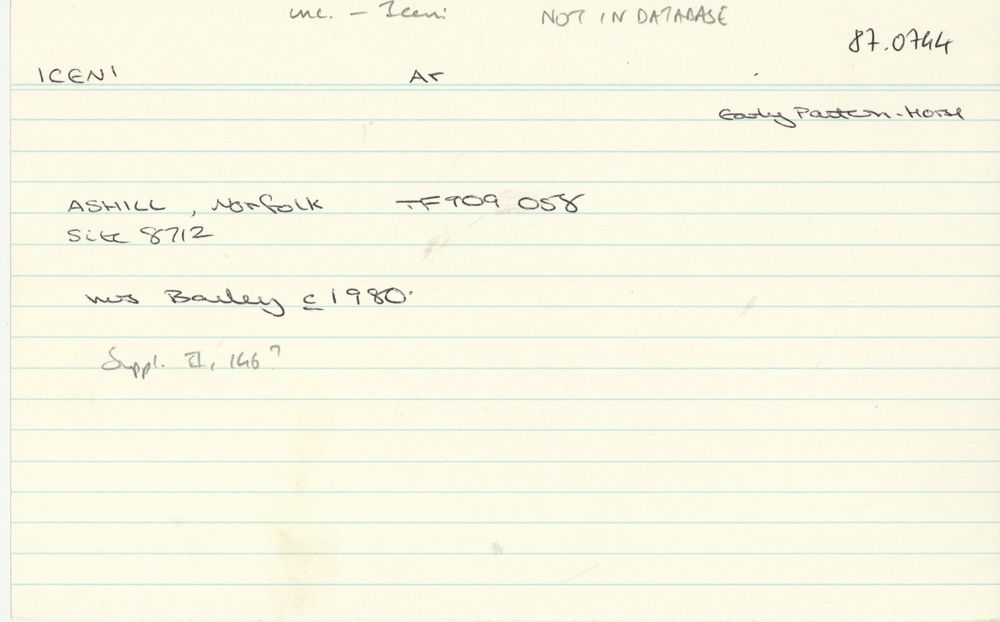 unc. - Iceni NOT IN DATABASE
87.0744
ICENI Ar
Early Pattern-Horse
ASHILL, Norfolk TF 909 058
Site 8712
Mrs Bailey c 1980.
Suppl. II, 146?